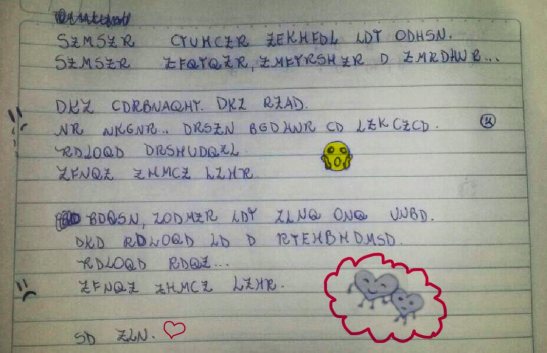 SZMSZR CTUHCZR ZEKHFDL LDT ODHSN.
SZMSZR ZFQTQZR, ZMFTRSHZR D ZMRDHNR...
DKZ CDRBNAQHT. DKZ RZAD.
NR NKGNR.. DRSZN BGDHNR CD LZKCZCD.
RDLOQD DRSHUDQZL
ZFNQZ ZHMCZ LZHR
BDQSN, ZODMZR LDT ZLNQ ONQ UNBD.
DKD RDLOQD LD D RTEHBHDMSD.
RDLOQD RDQZ...
ZFNQZ ZHMCZ LZHR.
SD ZLN.